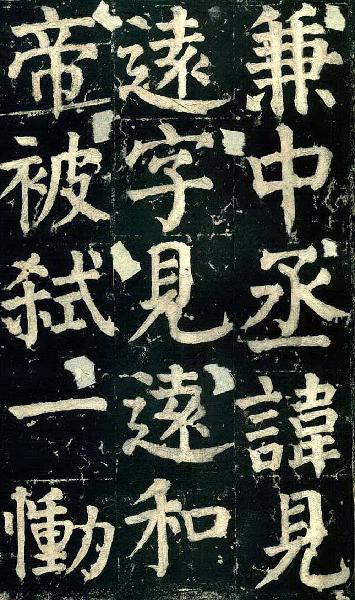 兼中丞諱見
遠字見遠和
帝被弑一慟